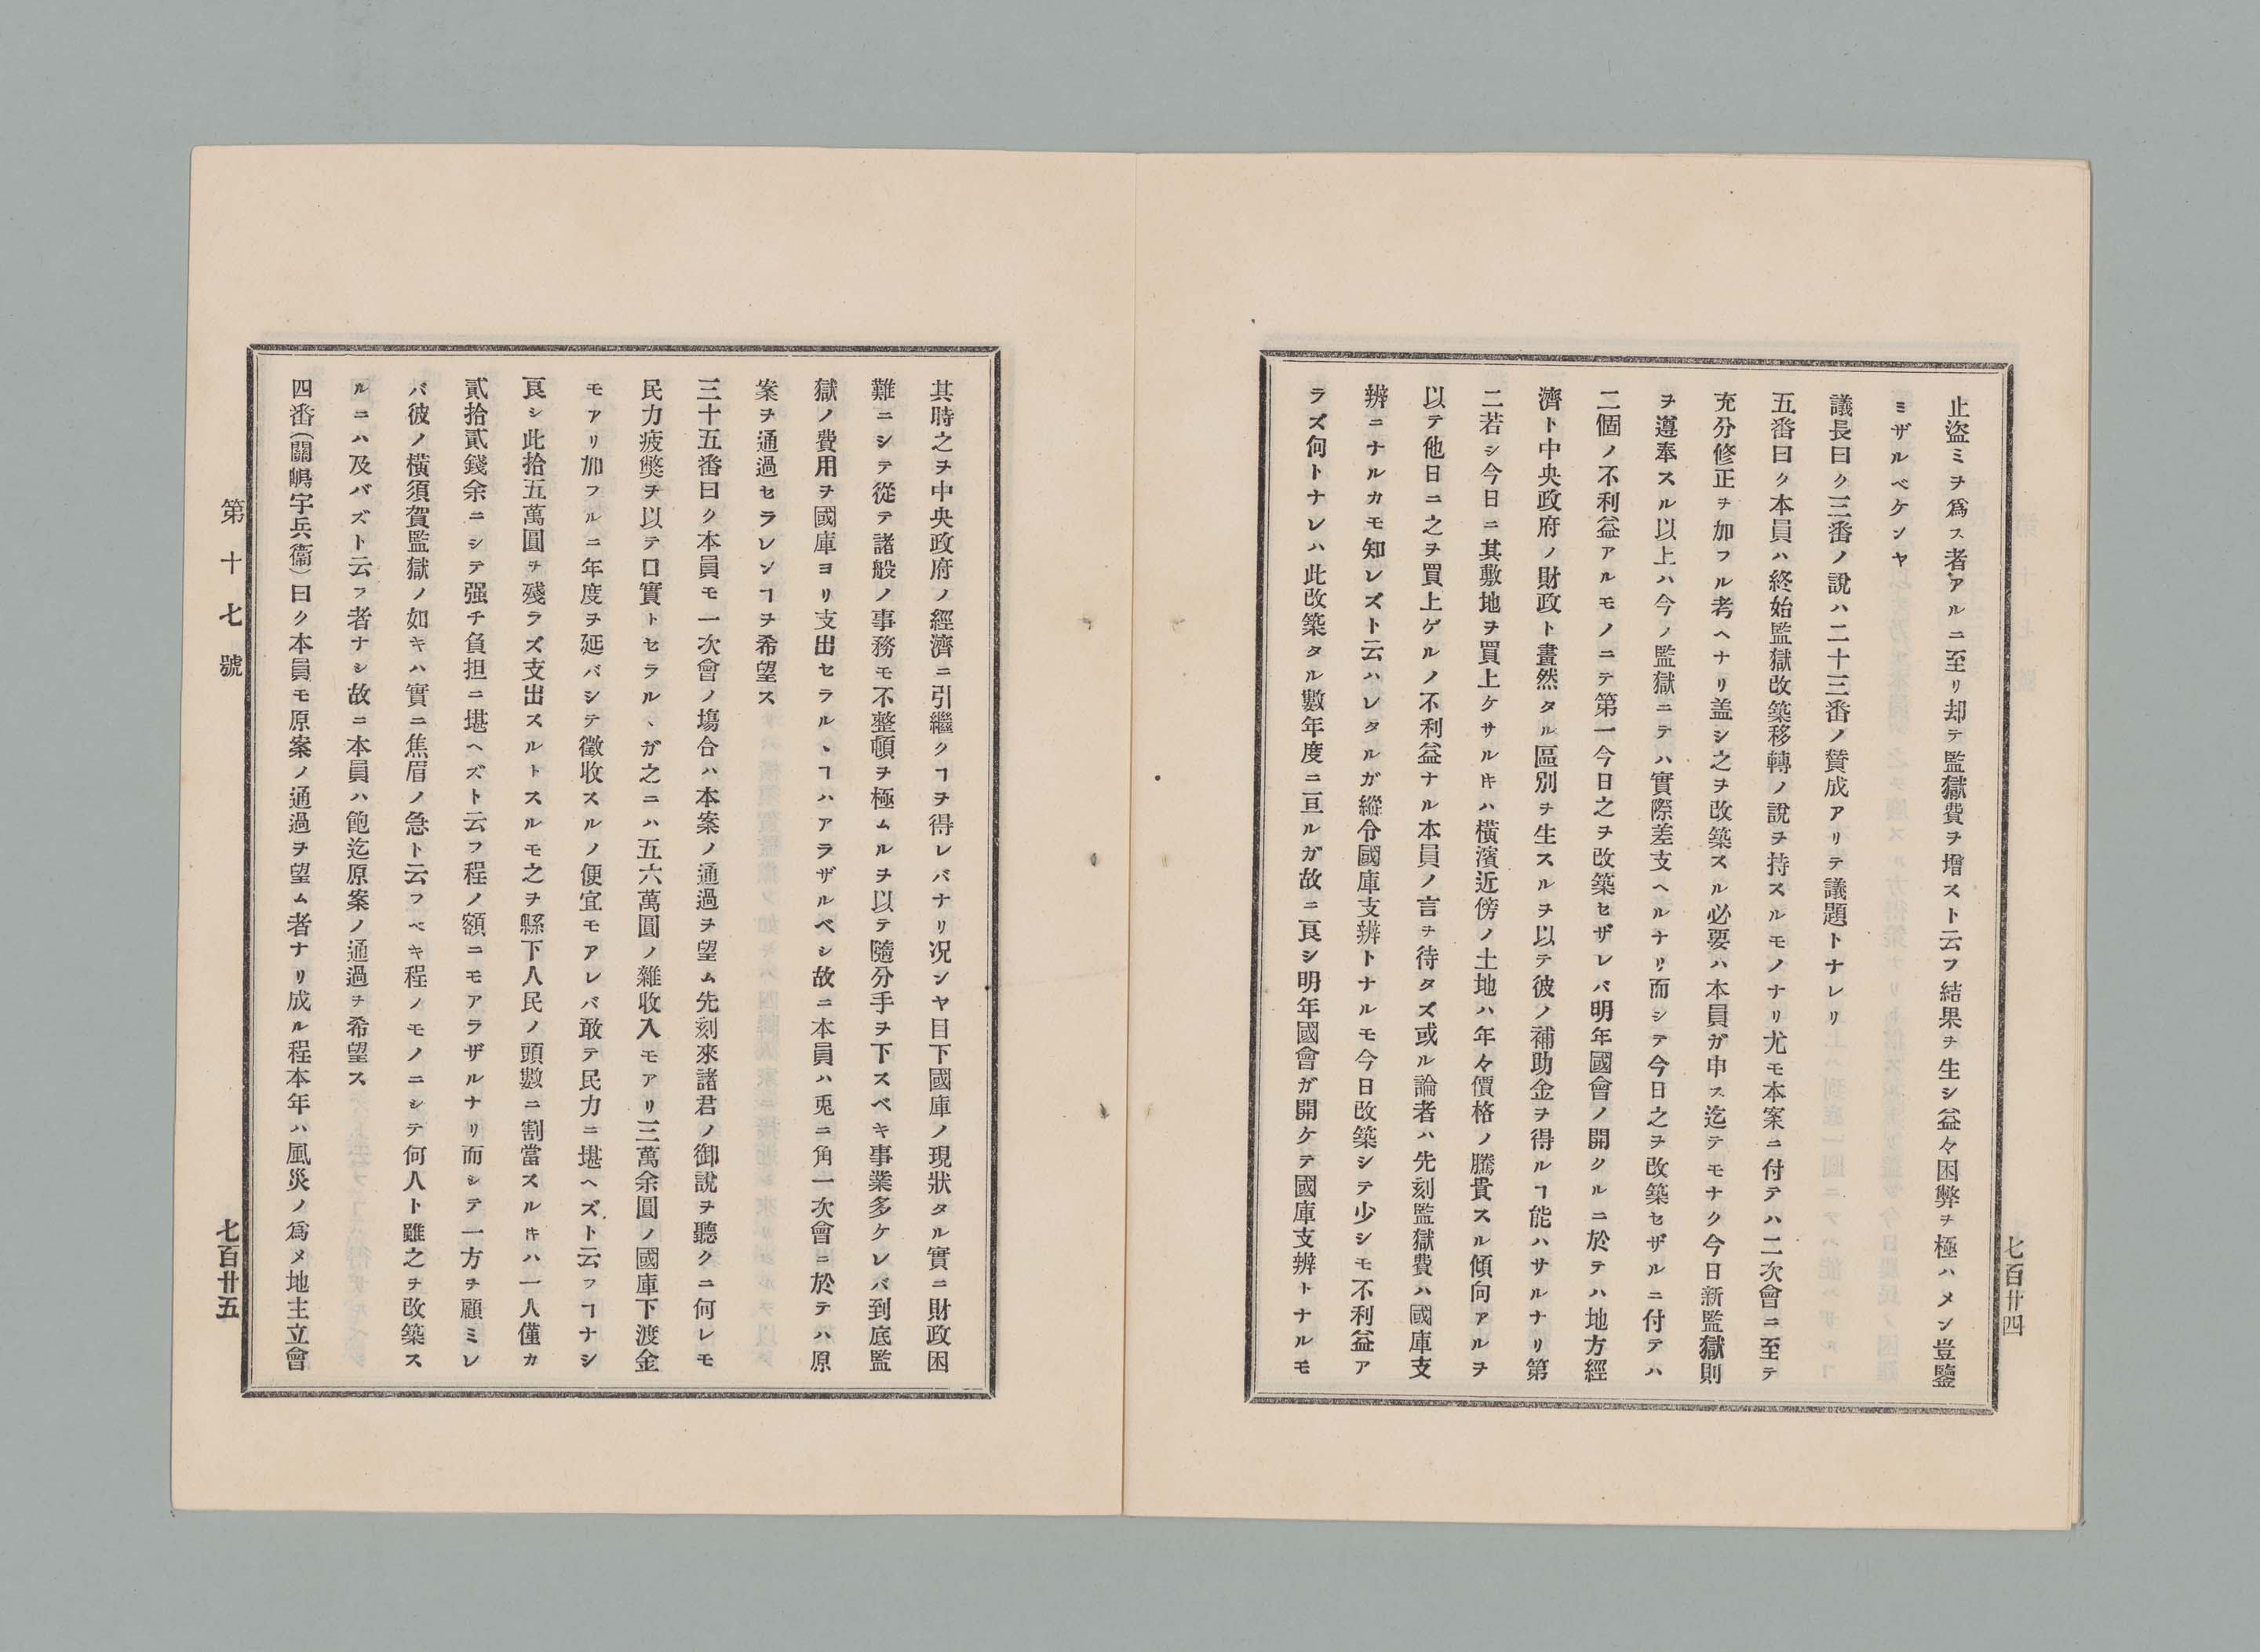 止盜ミヲ爲ス者アルニ至リ却テ監獄費ヲ增スト云フ結果ヲ生シ益々困弊ヲ極ハメン豈鑒
ミザルベケンヤ
議長曰ク三番ノ說ハ二十三番ノ賛成アリテ議題トナレリ
五番曰ク本員ハ終始監獄改築移轉ノ說ヲ持スルモノナリ尤モ本案ニ付テハ二次會ニ至テ
充分修正ヲ加フル考ヘナリ盖シ之ヲ改築スル必要ハ本員ガ申ス迄テモナク今日新監獄則
ヲ遵奉スル以上ハ今ノ監獄ニテハ實際差支ヘルナリ而シテ今日之ヲ改築セザルニ付テハ
二個ノ不利益アルモノニテ第一今日之ヲ改築セザレバ明年國會ノ開クルニ於テハ地方經
濟ト中央政府ノ財政ト畫然タル區別ヲ生スルヲ以テ彼ノ補助金ヲ得ルヿ能ハサルナリ第
二若シ今日ニ其敷地ヲ買上ケサルキハ橫濱近傍ノ土地ハ年々價格ノ騰貴スル傾向アルヲ
以テ他日ニ之ヲ買上ゲルノ不利益ナル本員ノ言ヲ待タズ或ル論者ハ先刻監獄費ハ國庫支
辨ニナルカモ知レズト云ハレタルガ縱令國庫支辨トナルモ今日改築シテ少シモ不利益ア
ラズ何トナレハ此改築タル數年度ニ亘ルガ故ニ良シ明年國會ガ開ケテ國庫支辨トナルモ
七百廿四
其時之ヲ中央政府ノ經濟ニ引繼クヿヲ得レバナリ況ンヤ目下國庫ノ現狀タル實ニ財政困
難ニシテ從テ諸般ノ事務モ不整頓ヲ極ムルヲ以テ隨分手ヲ下スベキ事業多ケレバ到底監
獄ノ費用ヲ國庫ヨリ支出セラルヽヿハアラザルベシ故ニ本員ハ兎ニ角一次會ニ於テハ原
案ヲ通過セラレンヿヲ希望ス
三十五番曰ク本員モ一次會ノ塲合ハ本案ノ通過ヲ望ム先刻來諸君ノ御說ヲ聽クニ何レモ
民力疲獘ヲ以テ口實トセラルヽガ之ニハ五六萬圓ノ雜收入モアリ三萬余圓ノ國庫下渡金
モアリ加フルニ年度ヲ延バシテ徵收スルノ便宜モアレバ敢テ民力ニ堪ヘズト云フヿナシ
良シ此拾五萬圓ヲ殘ラズ支出スルトスルモ之ヲ縣下人民ノ頭數ニ割當スルキハ一人僅カ
貳拾貳錢余ニシテ强チ負担ニ堪ヘズト云フ程ノ額ニモアラザルナリ而シテ一方ヲ顧ミレ
バ彼ノ橫須賀監獄ノ如キハ實ニ焦眉ノ急ト云フベキ程ノモノニシテ何人ト雖之ヲ改築ス
ルニハ及バズト云フ者ナシ故ニ本員ハ飽迄原案ノ通過ヲ希望ス
四番(關嶋宇兵衞)曰ク本員モ原案ノ通過ヲ望ム者ナリ成ル程本年ハ風災ノ爲メ地主立會
第十七號
七百廿五